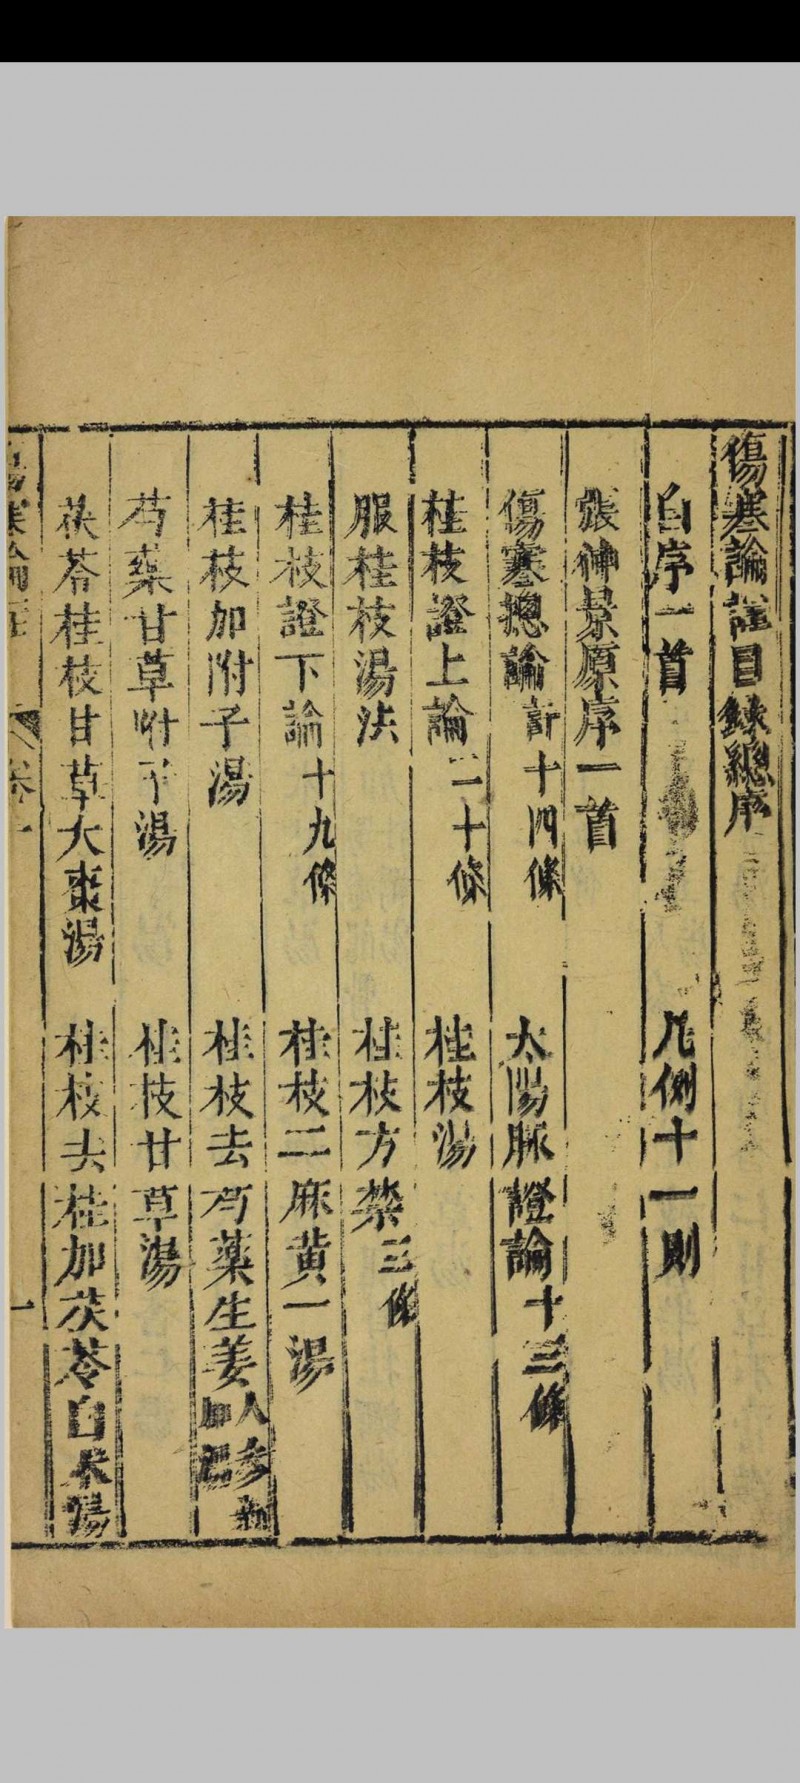 傷寒論註目錄總序
自序一首 凡例十一則
張仲景原序一首
傷寒總論計十四條 太陽脈證論十三條
桂枝證上論二十條 桂枝湯
服桂枝湯法 桂枝方禁三條
桂枝證下論十九條 桂枝二麻黃一湯
桂枝加附子湯 桂枝去芍薬生姜人參新加
芍薬甘草附子湯 桂枝甘草湯
茯苓桂枝甘草大棗湯 桂枝去桂加茯苓白术湯
傷寒論註 卷一 一